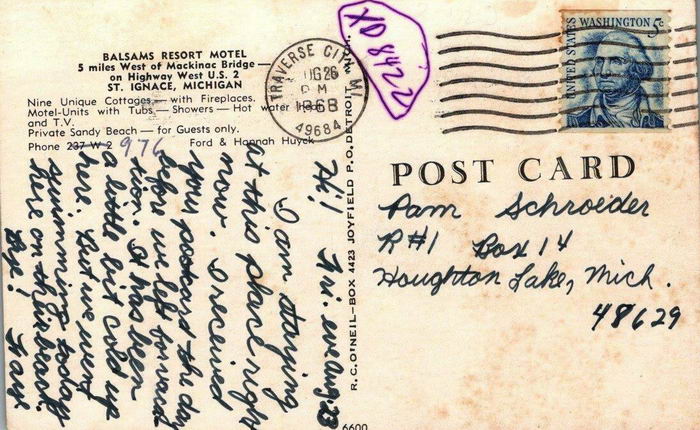 BALSAMS RESORT MOTEL
5 miles West of Mackinac Bridge —
on Highway West U.S. 2
ST. IGNACE, MICHIGAN
Nine Unique Cottages — with Fireplaces.
Motel-Units with Tubs — Showers — Hot water
and T.V.
Private Sandy Beach — for Guests only.
Phone 237 W 2 976 Ford & Hannah Huyck
TRAVERSE CITY, MI
AUG 26
PM
1968
49684
XD 8422
UNITED STATES
WASHINGTON 5c
POST CARD
Pam Schroeder
R#1 Box 14
Houghton Lake, Mich.
48629
R. C. O'NEIL—BOX 4423 JOYFIELD P. O. DETROIT
6600
Fri. eve Aug. 23
Hi!
I am staying
at this place right
now. I received
your postcard the day
before we left for vaca
tion. It has been
a little bit cold up
here. But we went
swimming today
here on this beach.
Bye!